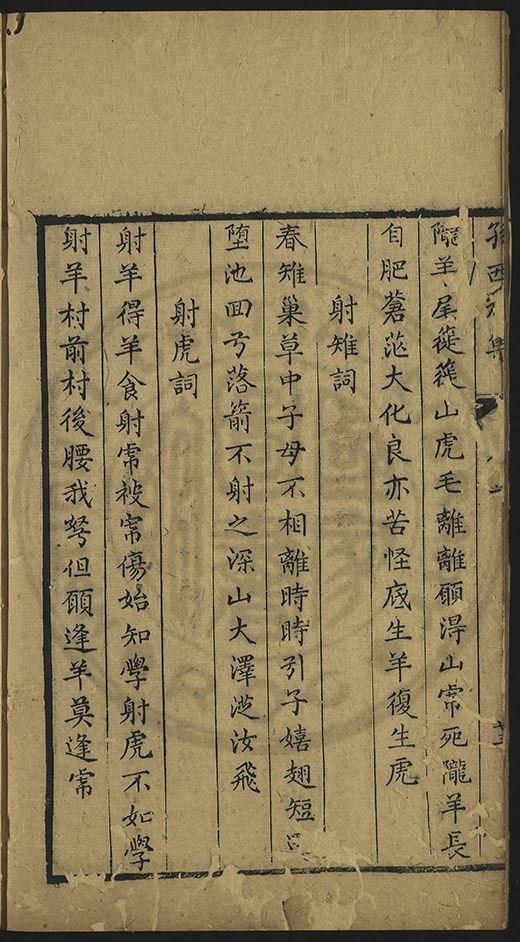 西
隴羊尾簁簁山虎毛離離願得山虎死隴羊長
自肥蒼茫大化良亦苦怪底生羊復生虎
射雉詞
春雉巢草中子母不相離時時引子嬉翅短
墮池回兮落箭不射之深山大澤從汝飛
射虎詞
射羊得羊食射虎被虎傷始知學射虎不如學
射羊村前村後腰我弩但願逢羊莫逢虎